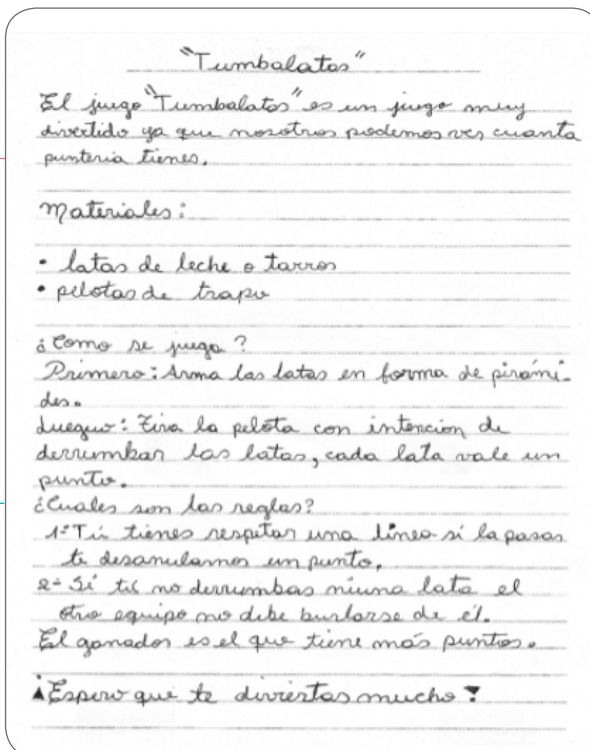 "Tumbalatas"
El juego "Tumbalatas" es un juego muy
divertido ya que nosotros podemos ver cuanta
punteria tienes.
Materiales:
• latas de leche o tarros
• pelotas de trapo
¿Como se juega?
Primero: Arma las latas en forma de pirámi-
des.
Luegur: Tira la pelota con intencion de
derrumbar las latas, cada lata vale un
punto.
¿Cuales son las reglas?
1º Tú tienes respetar una línea si la pasas
te desanulamos un punto.
2º Sí tú no derrumbas niuna lata el
otro equipo no debe burlarse de él.
El ganador es el que tiene más puntos.
¡Espero que te diviertas mucho!